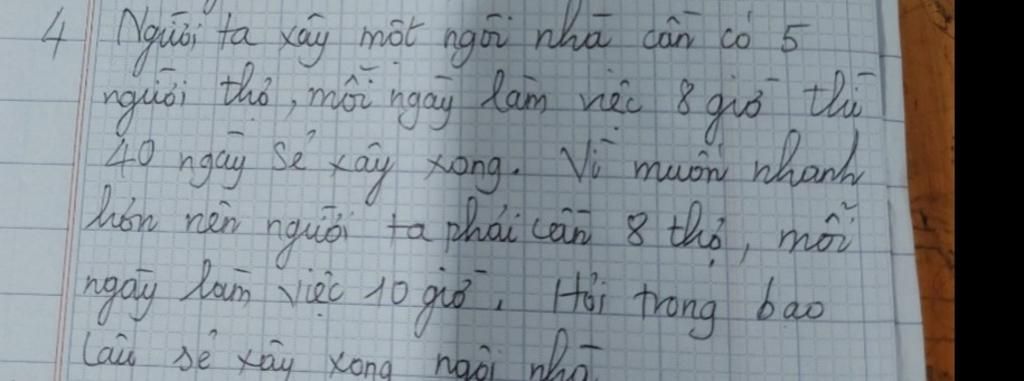 4 Người ta xây một ngôi nhà cần có 5
người thợ, mỗi ngày làm việc 8 giờ thì
40 ngày sẽ xây xong. Vì muốn nhanh
hơn nên người ta phải cần 8 thợ, mỗi
ngày làm việc 10 giờ. Hỏi trong bao
lâu sẽ xây xong ngôi nhà